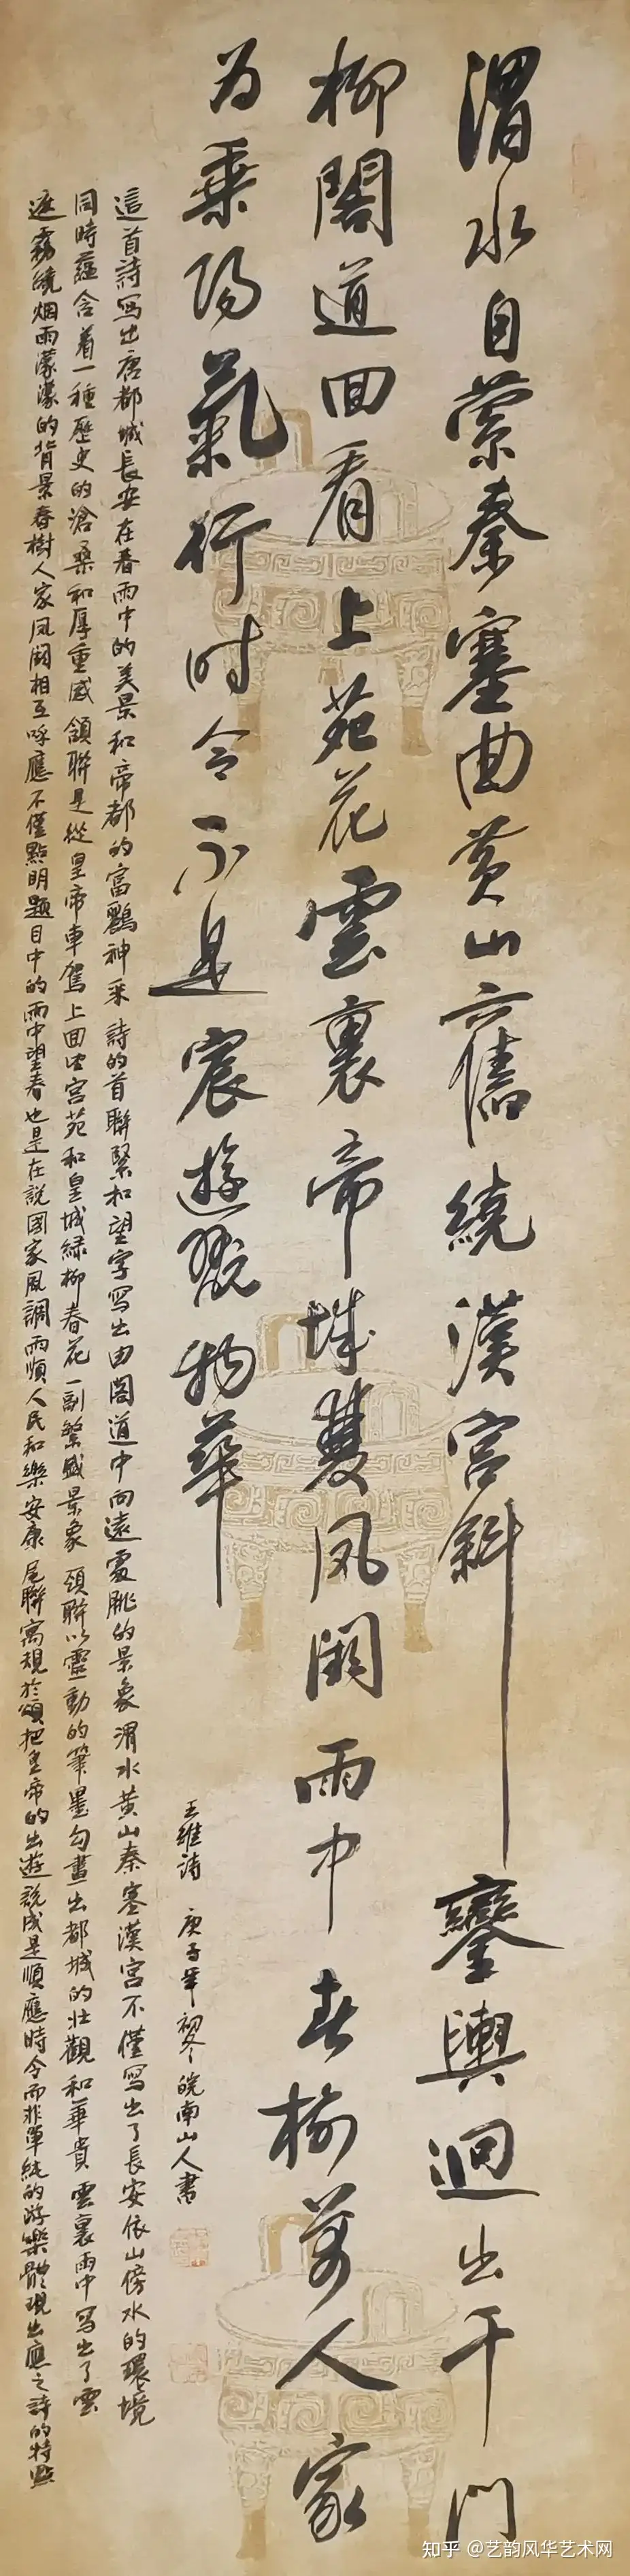 渭水自萦秦塞曲黄山旧繞漢宫斜鑾輿迥出千門
柳閣道回看上苑花雲裏帝城雙凤闕雨中春樹萬人家
为乘陽氣行时令不是宸遊翫物華
王維詩 庚子年初冬皖南山人書
這首詩寫出唐都城長安在春雨中的美景和帝都的富麗神采 詩的首聯緊扣望字寫出由閣道中向遠處眺的景象渭水黄山秦塞漢宫不僅寫出了長安依山傍水的環境
同時蕴含着一種歷史的滄桑和厚重感 頷聯是從皇帝車駕上回望宫苑和皇城緑柳春花一副繁盛景象 頸聯以靈動的筆墨勾畫出都城的壮觀和華貴 雲裏雨中寫出了雲
遮霧繞烟雨濛濛的背景春樹人家凤闕相互呼應不僅點明題目中的雨中望春也是在説國家風調雨順人民和樂安康 尾聯寓規於頌把皇帝的出遊説成是順應時令而非單純的游樂體現出應之詩的特點
知乎 @艺韵风华艺术网